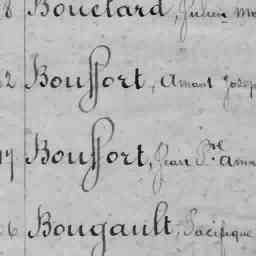 8 Bouclard, Julien
2 Bouffort, Amant Josep
17 Bouffort, Jean Bte Aman
6 Bougault, Pacifique